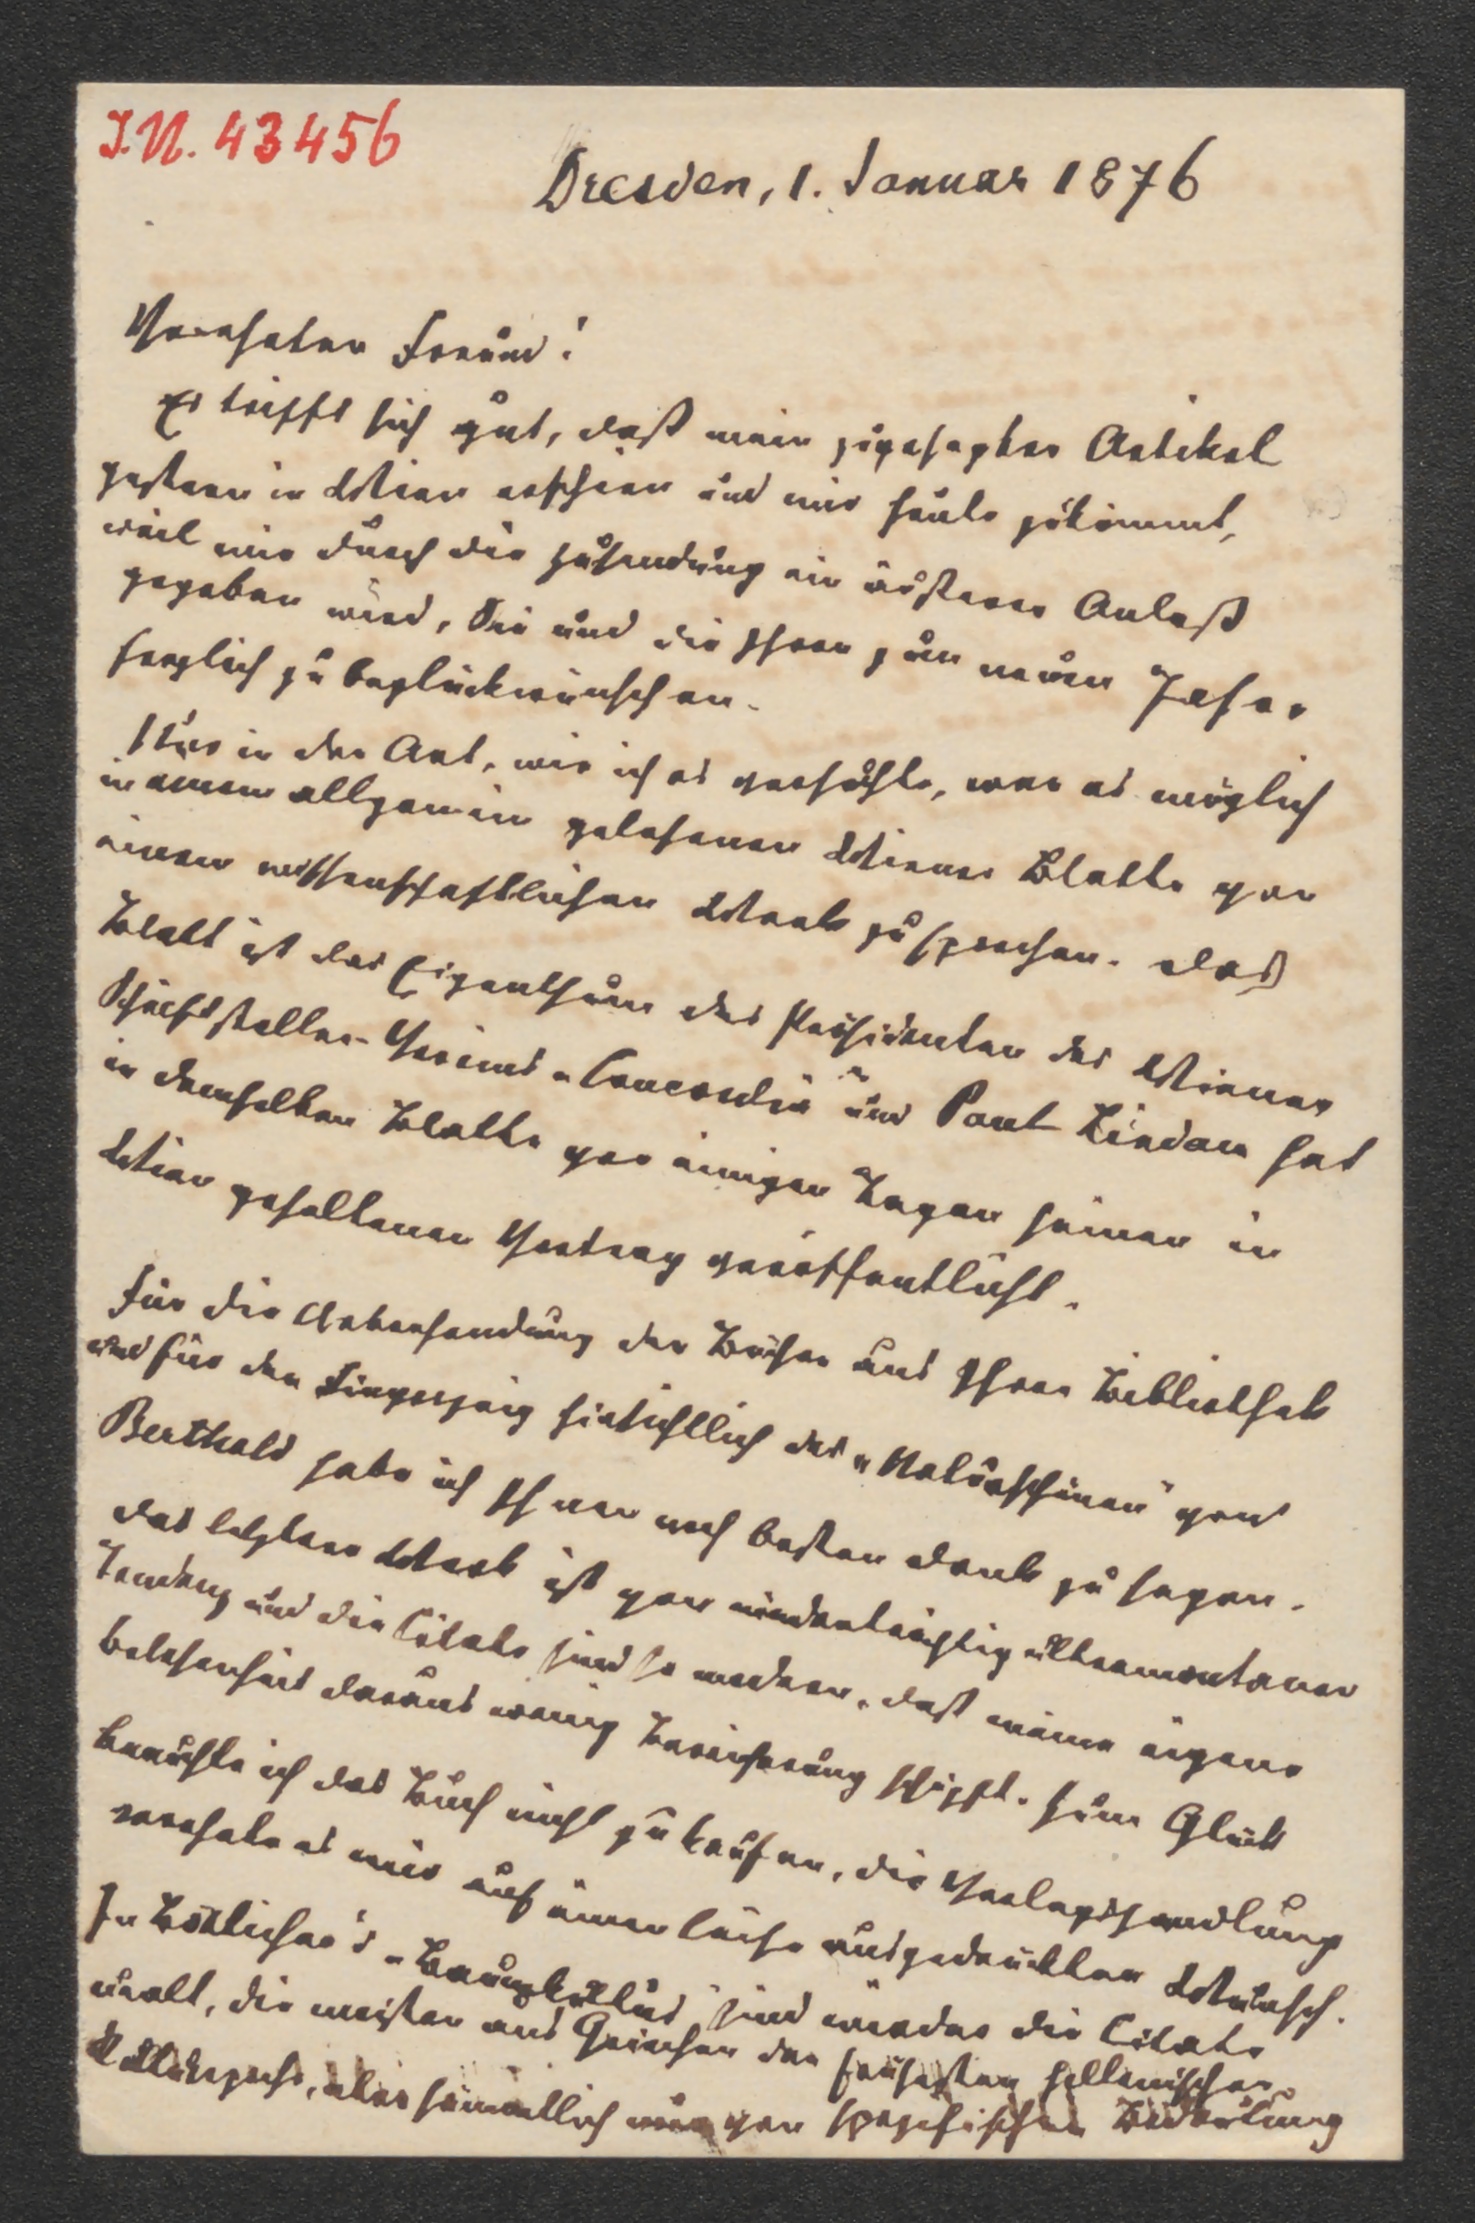 I.N. 43456
Dresden, 1. Januar 1876
Verehrter Freund!
Es trifft sich gut, daß mein zugesagter Artikel
gestern in Wien erschien und mir heute zukommt,
weil mir durch die Zusendung ein äußerer Anlaß
gegeben wird, Sie und die Ihren zum neuen Jahre
herzlich zu beglückwünschen.
Nur in der Art, wie ich es versuchte, war es möglich
in einem allgemein gelesenen Wiener Blatte von
einem wissenschaftlichen Werk zu sprechen. Das
Blatt ist das Eigenthum des Präsidenten des Wiener
Schriftsteller-Vereins „Concordia" und Paul Lindau hat
in demselben Blatte vor einigen Tagen seinen in
Wien gehaltenen Vortrag veröffentlicht.
Für die Uebersendung der Bücher aus Ihrer Bibliothek
und für den Fingerzeig hinsichtlich des „Naturschönen" von
Berthold habe ich Ihnen noch besten Dank zu sagen.
Das letztere Werk ist von niederträchtig ultramontaner
Tendenz und die Citate sind so modern, daß meine eigene
Belesenheit daraus wenig Bereicherung schöpft. Zum Glück
brauchte ich das Buch nicht zu kaufen, die Verlagshandlung
verehrte es mir auf einen leise ausgedrückten Wunsch.
In Bötticher's „Baumkultus" sind wieder die Citate
uralt, die meisten aus Griechen der frühesten hellenischen
Kulturepoche, aber sämmtlich nur von spezifischer Bedeutung